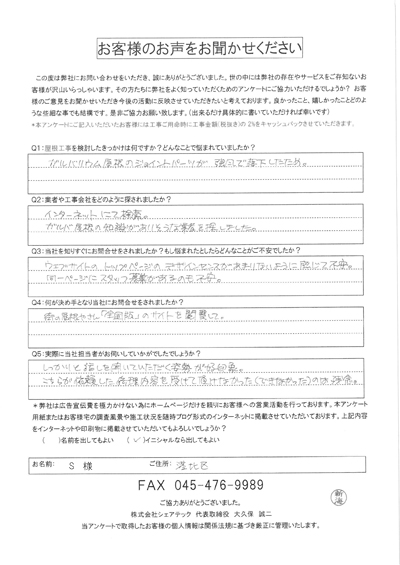 お客様のお声をお聞かせください
この度は弊社にお問い合わせをいただき、誠にありがとうございました。世の中には弊社の存在やサービスをご存知ないお
客様が沢山いらっしゃいます。その方たちに弊社をよく知っていただくためのアンケートにご協力いただけるでしょうか？ お客
様のご意見をお聞かせいただき今後の活動に反映させていただきたいと考えております。良かったこと、嬉しかったことどのよう
な些細な事でも結構です。是非ご協力お願い致します。(出来るだけ具体的に書いていただければ幸いです)
*本アンケートにご記入いただいたお客様には工事ご用命時に工事金額(税抜き)の2%をキャッシュバックさせていただきます。
Q1：屋根工事を検討したきっかけは何ですか？どんなことで悩まれていましたか？
ガルバリウム屋根のジョイントパーツが強風で落下したため。
Q2：業者や工事会社をどのように探されましたか？
インターネットにて検索。
ガルバ屋根の知識がありそうな業者を探しました。
Q3：当社を知りすぐにお問合せをされましたか？もし悩まれたとしたらどんなことがご不安でしたか？
ウェブサイトのトップページのデザインセンスがあまりないように感じて不安。
同一ページにスタッフ募集があるのも不安。
Q4：何が決め手となり当社にお問合せをされましたか？
街の屋根やさん「全国版」のサイトを閲覧して。
Q5：実際に当社担当者がお伺いしていかがでしたでしょうか？
しっかりと話しを聞いていただく姿勢が好印象。
こちらが依頼した修理内容を受けて頂けなかった(できなかった)のは残念。
＊弊社は広告宣伝費を極力かけない為にホームページだけを頼りにお客様への営業活動を行っております。本アンケート
用紙またはお客様宅の調査風景や施工状況を随時ブログ形式のインターネットに掲載させていただいております。上記内容
をインターネットや印刷物に掲載させていただいてもよろしいでしょうか？
( )名前を出してもよい (✓)イニシャルなら出してもよい
お名前: S 様 ご住所: 港北区
FAX 045-476-9989
ご協力ありがとうございました。
株式会社シェアテック 代表取締役 大久保 誠二
当アンケートで取得したお客様の個人情報は関係法規に基づき厳正に管理いたします。